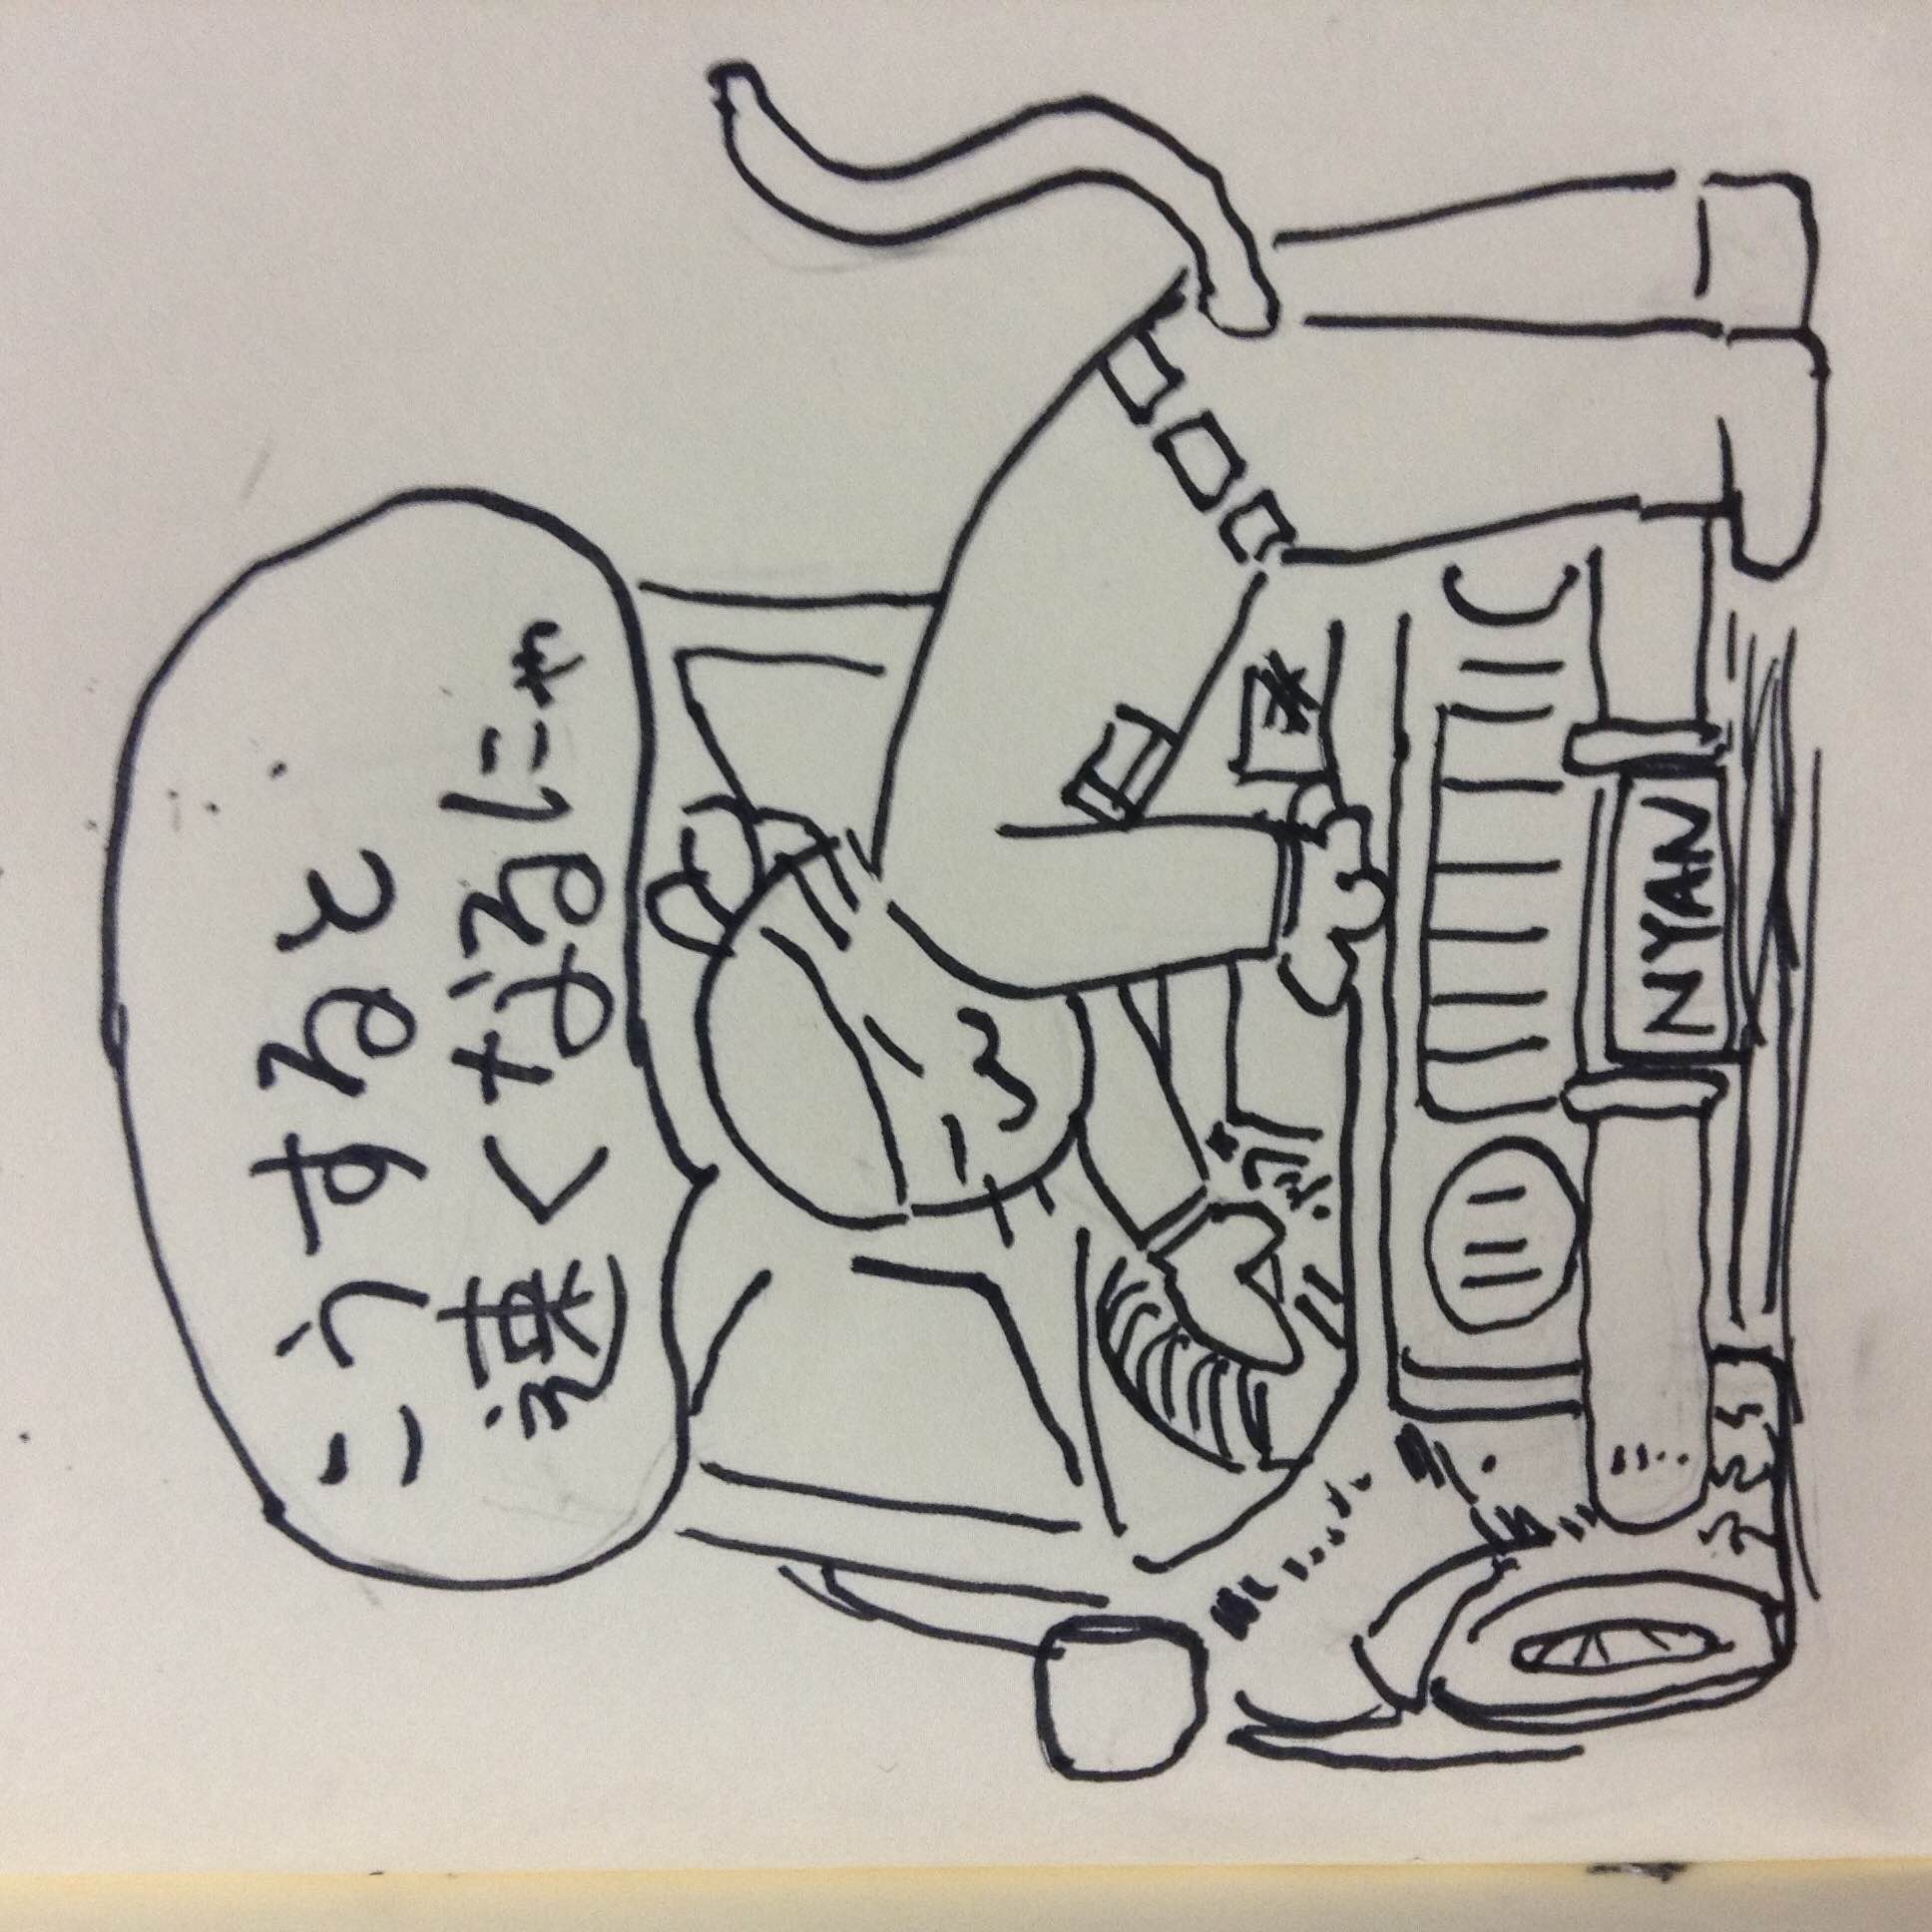 こうすると
速くなるにゃ
NYAN